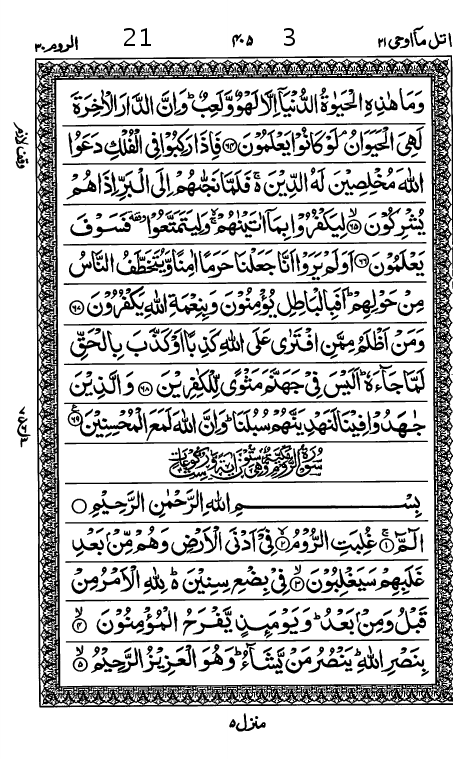 اتل مآ اوحی ۲۱ 3 ۴۰۵ 21 الروم ۳۰
وَمَا هٰذِهِ الْحَيٰوةُ الدُّنْيَآ اِلَّا لَهْوٌ وَّلَعِبٌ ؕ وَاِنَّ الدَّارَ الْاٰخِرَةَ
لَهِىَ الْحَيَوَانُ ۘ لَوْ كَانُوْا يَعْلَمُوْنَ ﴿۶۴﴾ فَاِذَا رَكِبُوْا فِى الْفُلْكِ دَعَوُا
اللّٰهَ مُخْلِصِيْنَ لَهُ الدِّيْنَ ۚ فَلَمَّا نَجّٰىهُمْ اِلَى الْبَرِّ اِذَا هُمْ
يُشْرِكُوْنَ ﴿۶۵﴾ۙ لِيَكْفُرُوْا بِمَآ اٰتَيْنٰهُمْ ۙ وَلِيَتَمَتَّعُوْا ۥ فَسَوْفَ
يَعْلَمُوْنَ ﴿۶۶﴾ اَوَلَمْ يَرَوْا اَنَّا جَعَلْنَا حَرَمًا اٰمِنًا وَّيُتَخَطَّفُ النَّاسُ
مِنْ حَوْلِهِمْ ؕ اَفَبِالْبَاطِلِ يُؤْمِنُوْنَ وَبِنِعْمَةِ اللّٰهِ يَكْفُرُوْنَ ﴿۶۷﴾
وَمَنْ اَظْلَمُ مِمَّنِ افْتَرٰى عَلَى اللّٰهِ كَذِبًا اَوْ كَذَّبَ بِالْحَقِّ
لَمَّا جَآءَهٗ ؕ اَلَيْسَ فِىْ جَهَنَّمَ مَثْوًى لِّلْكٰفِرِيْنَ ﴿۶۸﴾ وَالَّذِيْنَ
جٰهَدُوْا فِيْنَا لَنَهْدِيَنَّهُمْ سُبُلَنَا ؕ وَاِنَّ اللّٰهَ لَمَعَ الْمُحْسِنِيْنَ ﴿۶۹﴾
بِسْمِ اللّٰهِ الرَّحْمٰنِ الرَّحِيْمِ
الٓمّٓ ﴿۱﴾ۚ غُلِبَتِ الرُّوْمُ ﴿۲﴾ۙ فِىْٓ اَدْنَى الْاَرْضِ وَهُمْ مِّنْۢ بَعْدِ
غَلَبِهِمْ سَيَغْلِبُوْنَ ﴿۳﴾ۙ فِىْ بِضْعِ سِنِيْنَ ؕ لِلّٰهِ الْاَمْرُ مِنْ
قَبْلُ وَمِنْۢ بَعْدُ ؕ وَيَوْمَئِذٍ يَّفْرَحُ الْمُؤْمِنُوْنَ ﴿۴﴾ۙ
بِنَصْرِ اللّٰهِ ؕ يَنْصُرُ مَنْ يَّشَآءُ ؕ وَهُوَ الْعَزِيْزُ الرَّحِيْمُ ﴿۵﴾ۙ
منزل ۵